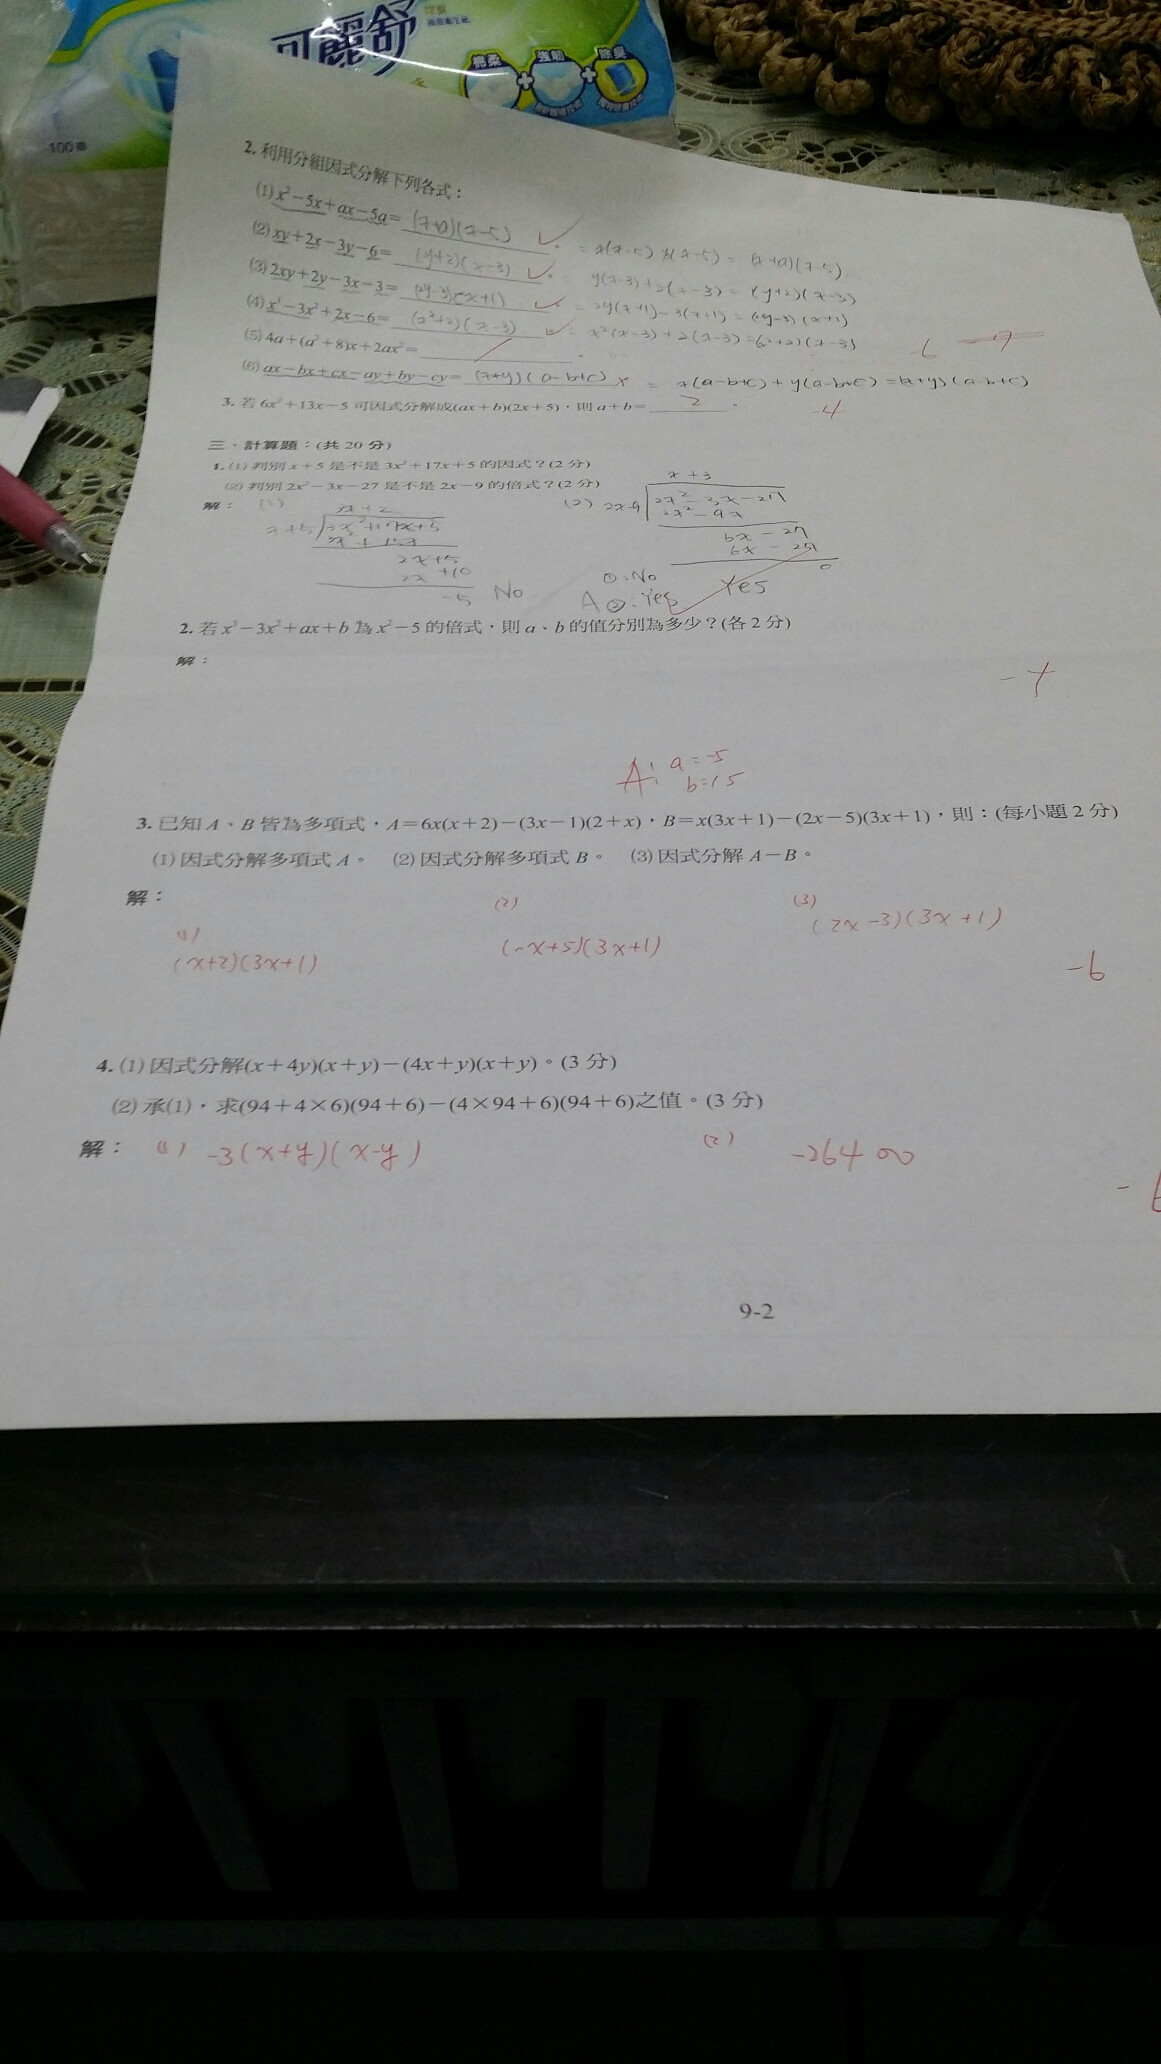 可麗舒
棉柔
+
強韌
+
除臭
2. 利用分組因式分解下列各式：
(1) x²-5x+ax-5a= (x+a)(x-5) 。
(2) xy+2x-3y-6= (y+2)(x-3) 。 = y(x-3)+2(x-3) = (y+2)(x-3)
(3) 2xy+2y-3x-3= (2y-3)(x+1) 。 = 2y(x+1)-3(x+1) = (2y-3)(x+1)
(4) x³-3x²+2x-6= (x²+2)(x-3) 。 = x²(x-3)+2(x-3) = (x²+2)(x-3)
(5) 4a+(a²+8)x+2ax²= 。
-6
(6) ax-bx+cx-ay+by-cy= (x+y)(a-b+c) x = x(a-b+c)+y(a-b+c) = (x+y)(a-b+c)
3. 若 6x²+13x-5 可因式分解成(ax+b)(2x+5)，則 a+b= 2 。
-4
三、計算題：(共 20 分)
1. (1) 判別 x+5 是不是 3x²+17x+5 的因式？(2 分)
(2) 判別 2x²-3x-27 是不是 2x-9 的倍式？(2 分)
解：
(1)
3x+2
x+5 3x²+17x+5
3x²+15x
2x+5
2x+10
-5
No
(2)
x+3
2x-9 2x²-3x-27
2x²-9x
6x-27
6x-27
0
Yes
A ①:No
②:Yes
2. 若 x³-3x²+ax+b 為 x²-5 的倍式，則 a、b 的值分別為多少？(各 2 分)
解：
A: a=-5
b=15
3. 已知 A、B 皆為多項式，A=6x(x+2)-(3x-1)(2+x)，B=x(3x+1)-(2x-5)(3x+1)，則：(每小題 2 分)
(1) 因式分解多項式 A。 (2) 因式分解多項式 B。 (3) 因式分解 A-B。
解：
(1)
(x+2)(3x+1)
(2)
(-x+5)(3x+1)
(3)
(2x-3)(3x+1)
-6
4. (1) 因式分解(x+4y)(x+y)-(4x+y)(x+y)。(3 分)
(2) 承(1)，求(94+4×6)(94+6)-(4×94+6)(94+6)之值。(3 分)
解： (1) -3(x+y)(x-y) (2) -26400
9-2